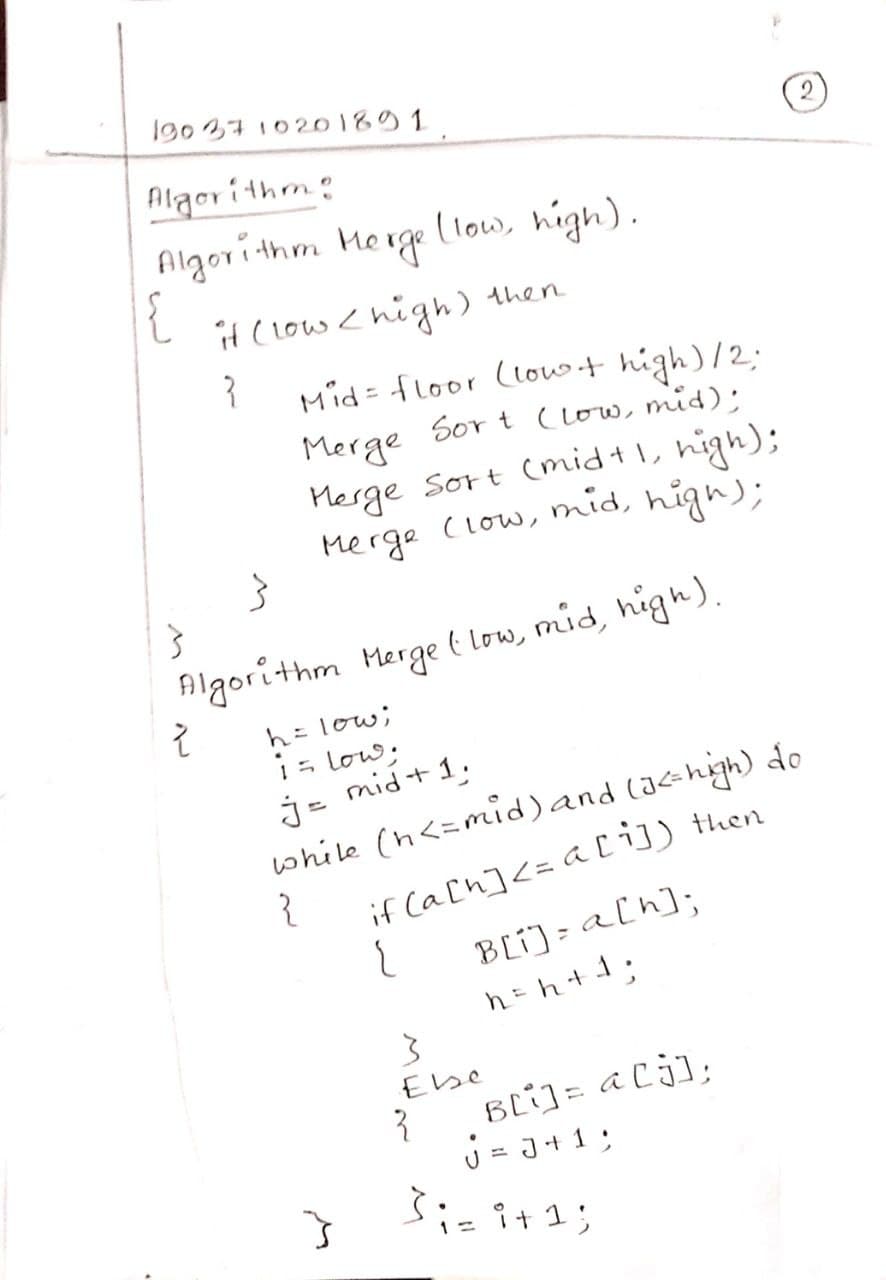 2
1903710201891.
Algorithm:
Algorithm Merge (low, high).
{ if (low < high) then
{ Mid = floor (low + high) / 2;
Merge Sort (low, mid);
Merge Sort (mid + 1, high);
Merge (low, mid, high);
}
}
Algorithm Merge (low, mid, high).
{ h = low;
i = low;
j = mid + 1;
while (h <= mid) and (J <= high) do
{ if (a[h] <= a[i]) then
{ B[i] = a[h];
h = h + 1;
}
Else
{ B[i] = a[j];
j = J + 1;
} } i = i + 1;